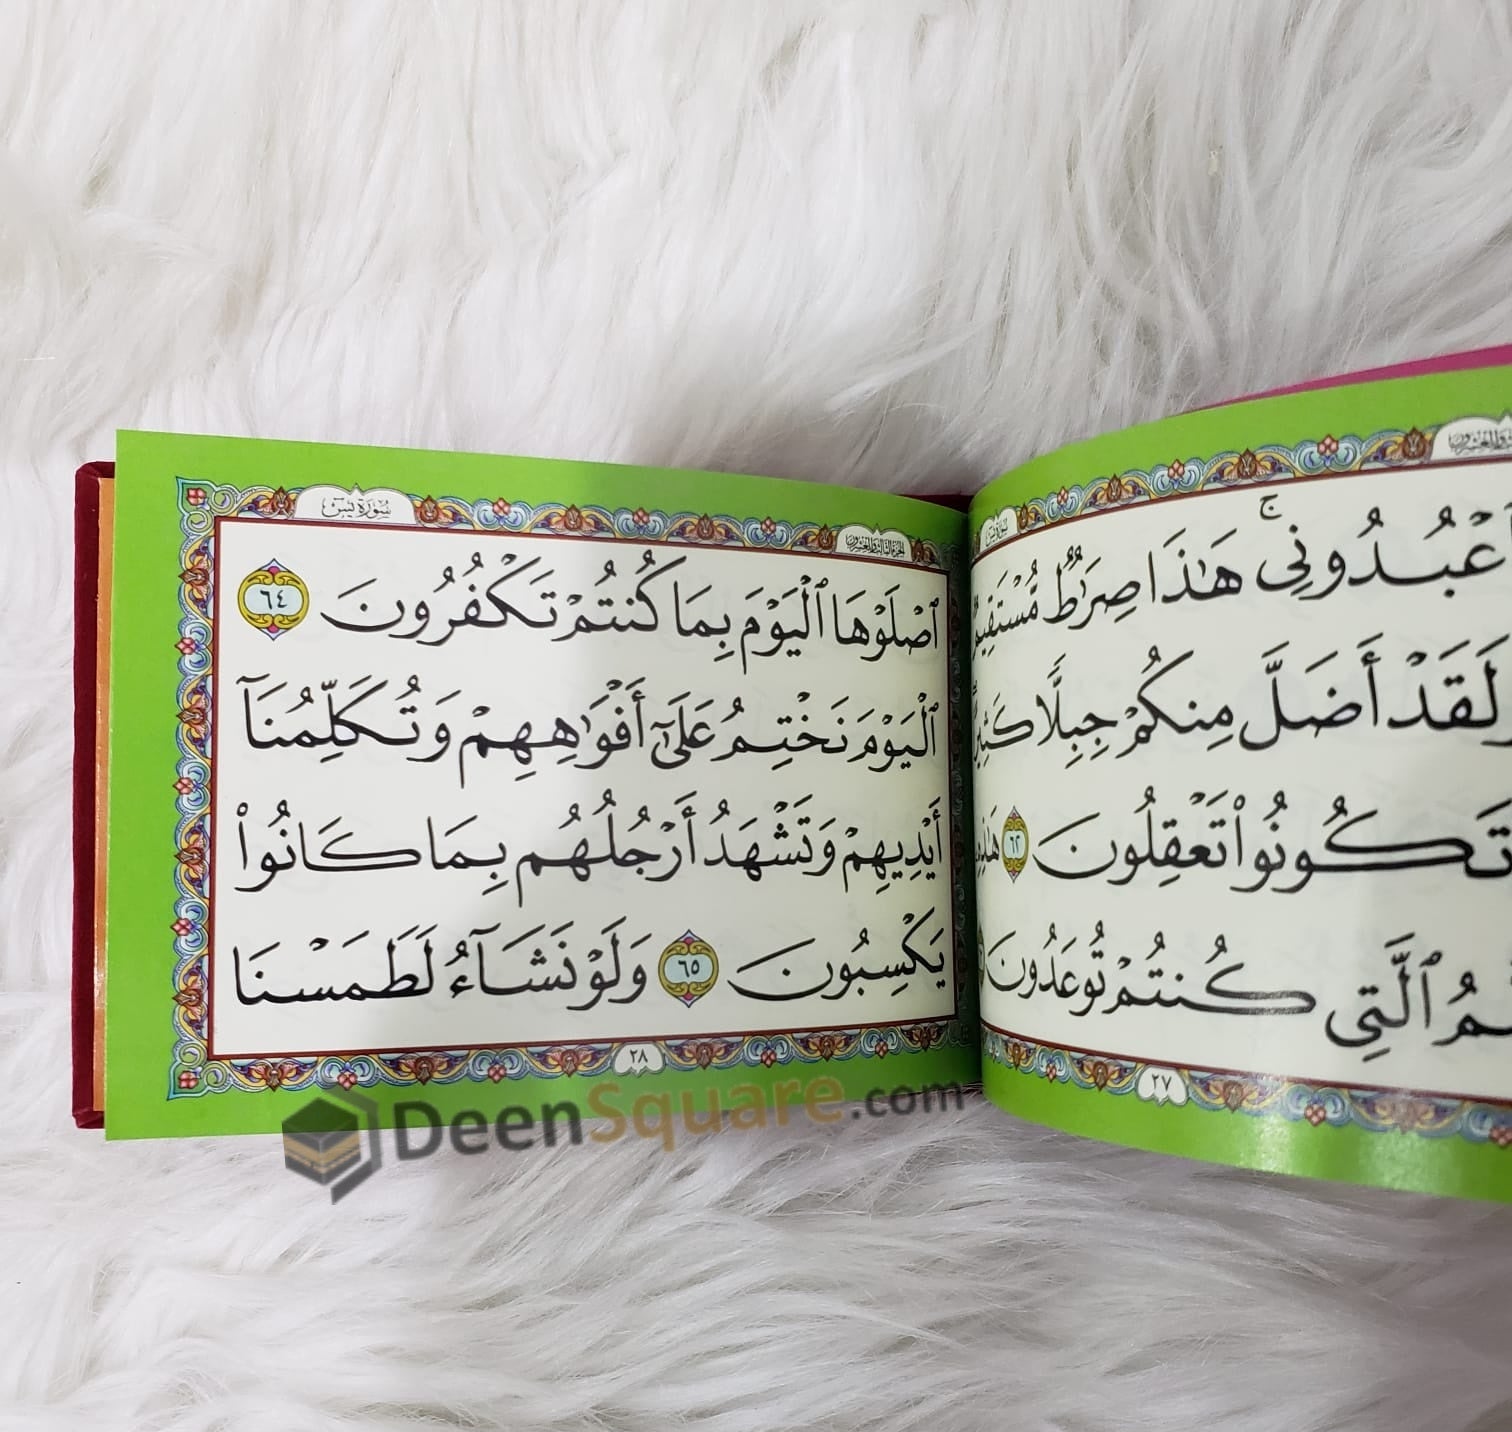 سورة يس
ٱعْبُدُونِى ۚ هَٰذَا صِرَٰطٌ مُّسْتَقِيمٌ
لَقَدْ أَضَلَّ مِنكُمْ جِبِلًّا كَثِيرًا
تَكُونُوا۟ تَعْقِلُونَ ٦٢ هَٰذِهِ
ٱلَّتِى كُنتُمْ تُوعَدُونَ
٢٧
الجزء الثالث والعشرون
سورة يس
ٱصْلَوْهَا ٱلْيَوْمَ بِمَا كُنتُمْ تَكْفُرُونَ ٦٤
ٱلْيَوْمَ نَخْتِمُ عَلَىٰٓ أَفْوَٰهِهِمْ وَتُكَلِّمُنَآ
أَيْدِيهِمْ وَتَشْهَدُ أَرْجُلُهُم بِمَا كَانُوا۟
يَكْسِبُونَ ٦٥ وَلَوْ نَشَآءُ لَطَمَسْنَا
٢٨
DeenSquare.com